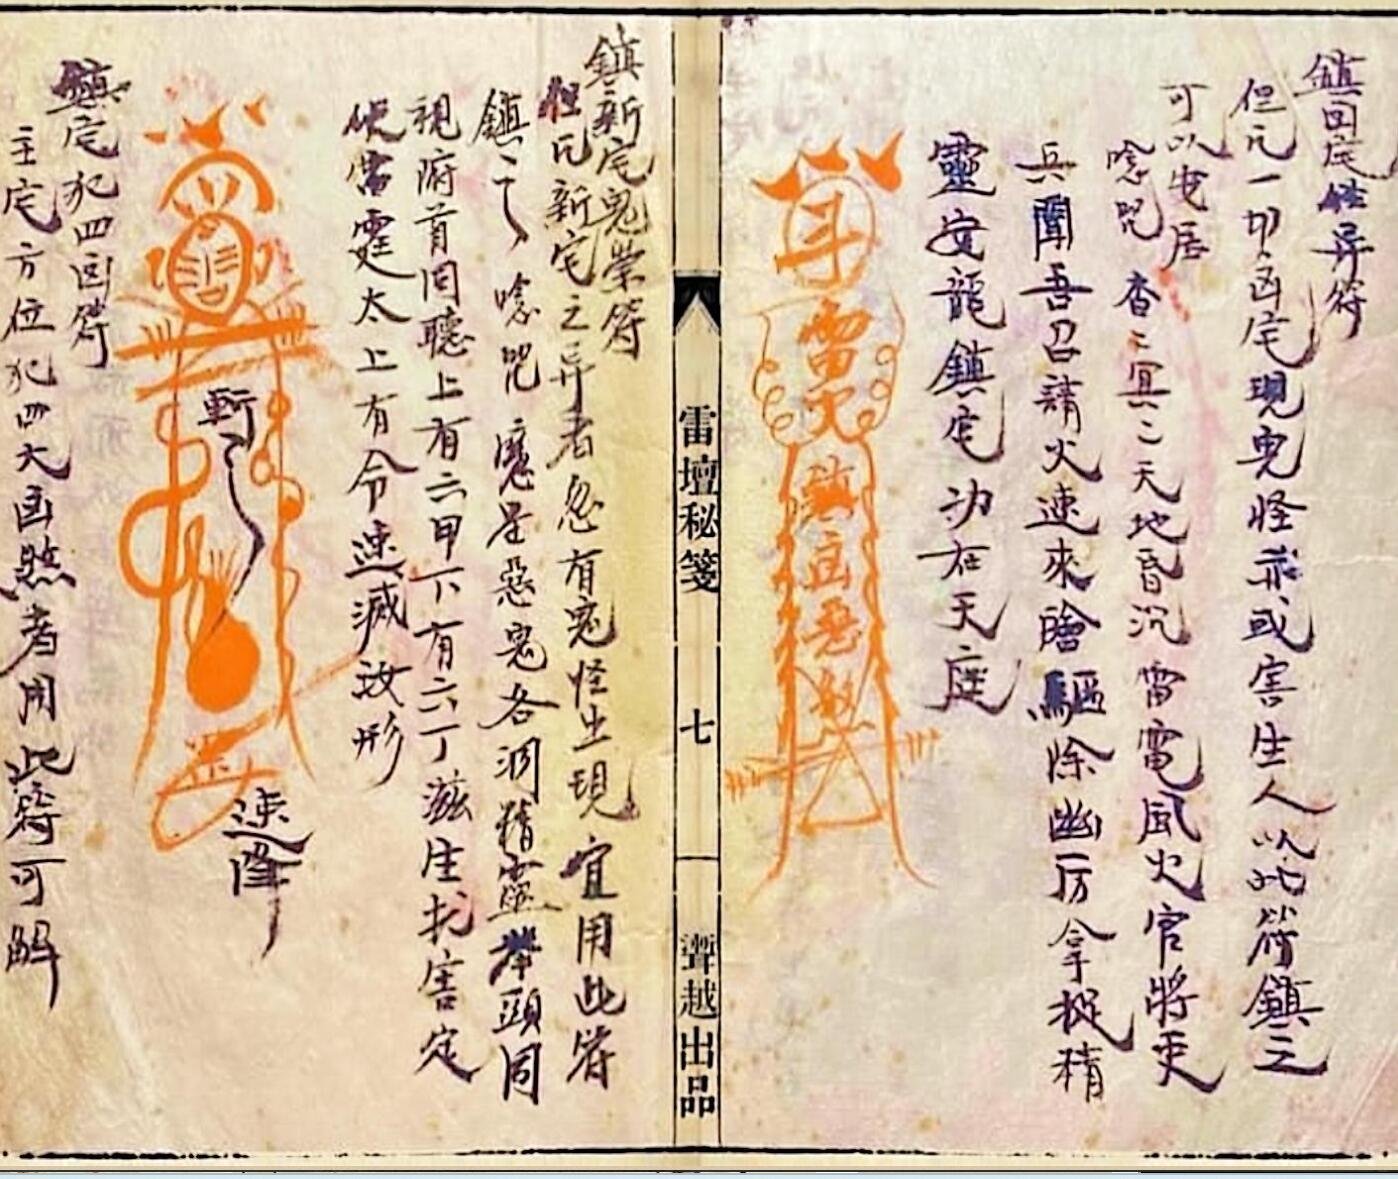 鎮囙宅怪异符
但凡一切凶宅現鬼怪亦或害生人以此符鎮之
可以安居
唸咒 杳〻冥〻天地昏沉雷電風火官將吏
兵聞吾召請火速來臨驅除幽厉拿捉精
靈安龍鎮宅功在天庭
斗
雷火
鎮
雷壇秘箋
七
聻越出品
鎮新宅鬼祟符
但凡新宅之异者忽有鬼怪出現宜用此符
鎮之 唸咒 魔是惡鬼各洞精靈舉頭同
視府首同聽上有六甲下有六丁滋生扎害定
使雷霆太上有令速滅汝形
斬
速降
鎮宅犯四囙符
主宅方位犯四大凶煞者用此符可解